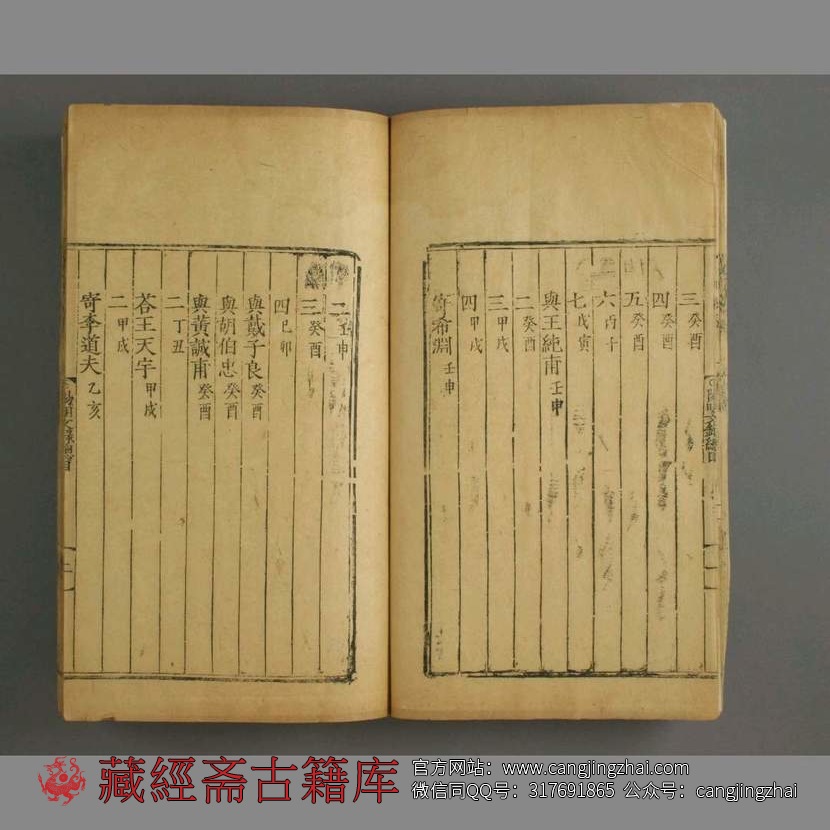 三癸酉
四癸酉
五癸酉
六丙子
七戊寅
與王純甫壬申
二癸酉
三甲戌
四甲戌
寄希淵壬申
二壬申
三癸酉
四己卯
與戴子良癸酉
與胡伯忠癸酉
與黃誠甫癸酉
二丁丑
荅王天宇甲戌
二甲戌
寄李道夫乙亥
藏經斋古籍库
官方网站：www.cangjingzhai.com
微信同QQ号：317691865 公众号：cangjingzhai